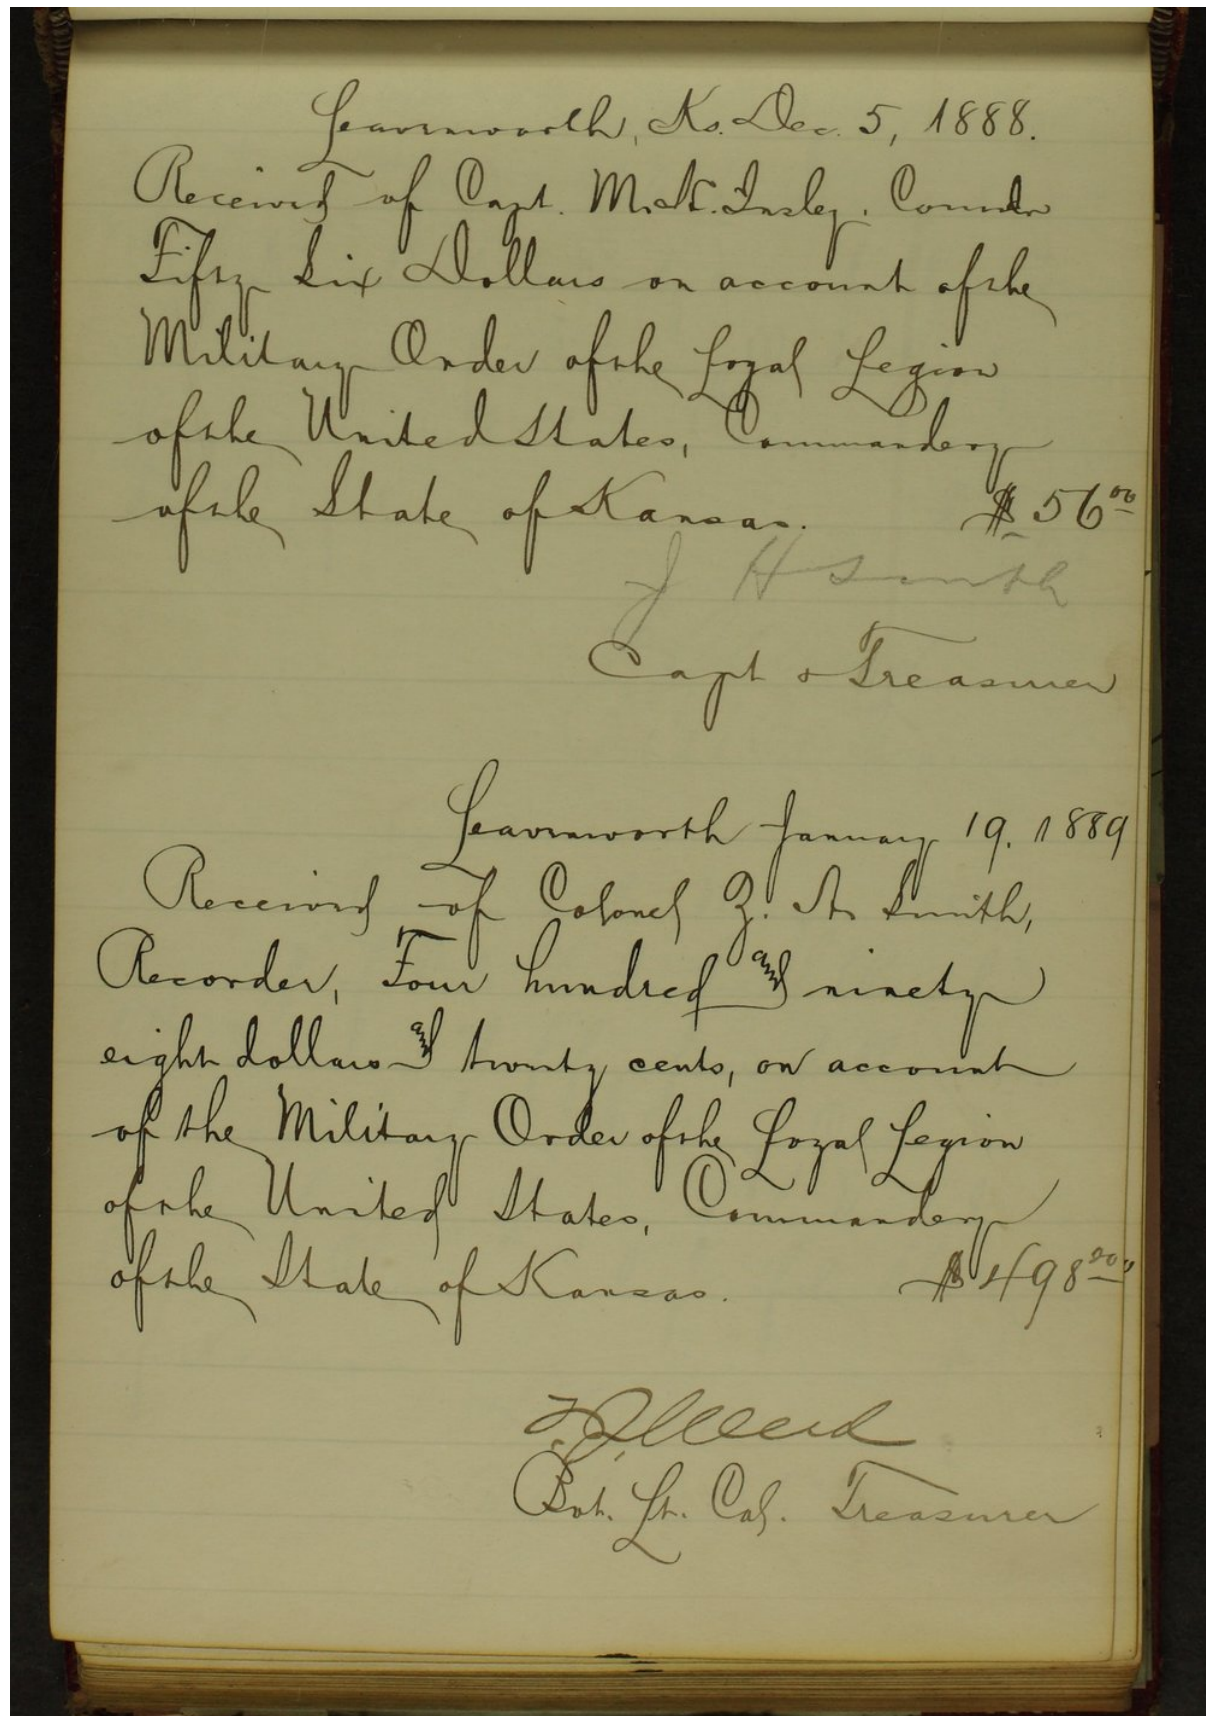 Leavenworth, Ks. Dec. 5, 1888.
Received of Capt. M. H. Insley, Comdr
Fifty Six Dollars on account of the
Military Order of the Loyal Legion
of the United States, Commandery
of the State of Kansas. $56 00
J H Smith
Capt & Treasurer
Leavenworth January 19. 1889
Received of Colonel Z. A. Smith,
Recorder, Four hundred and ninety
eight dollars and twenty cents, on account
of the Military Order of the Loyal Legion
of the United States, Commandery
of the State of Kansas. $498
Bvt. Lt. Col. Treasurer